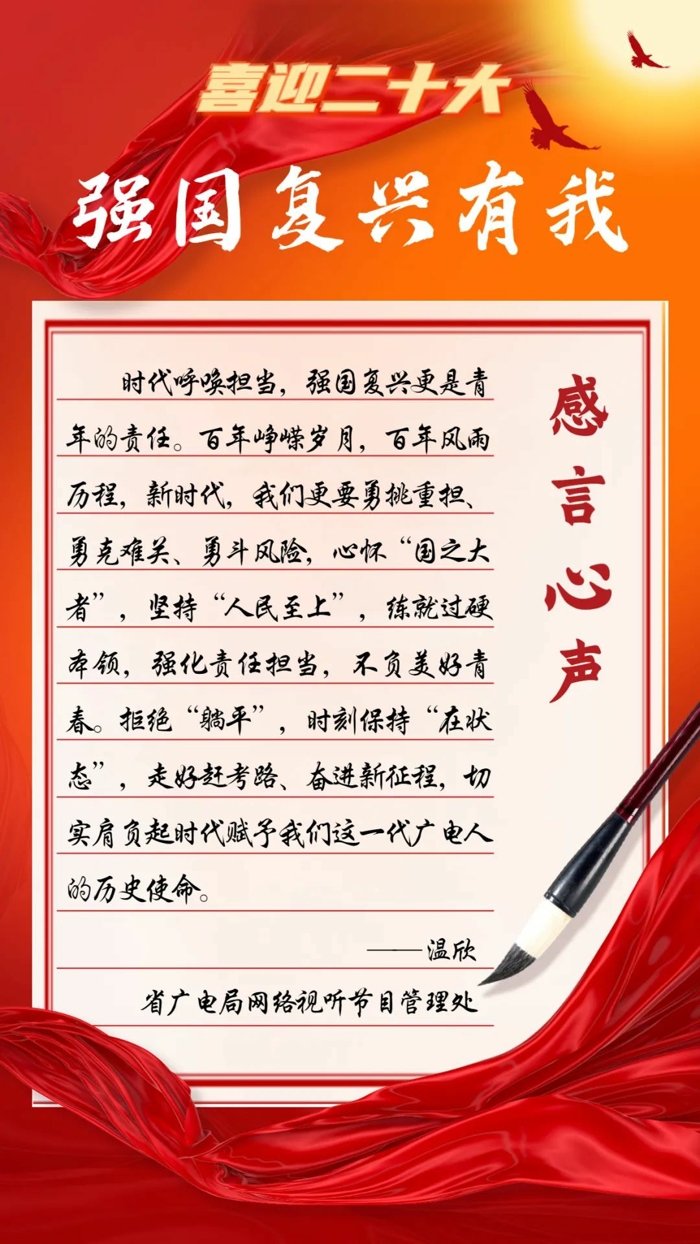 喜迎二十大
强国复兴有我
感言心声
时代呼唤担当，强国复兴更是青
年的责任。百年峥嵘岁月，百年风雨
历程，新时代，我们更要勇挑重担、
勇克难关、勇斗风险，心怀“国之大
者”，坚持“人民至上”，练就过硬
本领，强化责任担当，不负美好青
春。拒绝“躺平”，时刻保持“在状
态”，走好赶考路、奋进新征程，切
实肩负起时代赋予我们这一代广电人
的历史使命。
——温欣
省广电局网络视听节目管理处